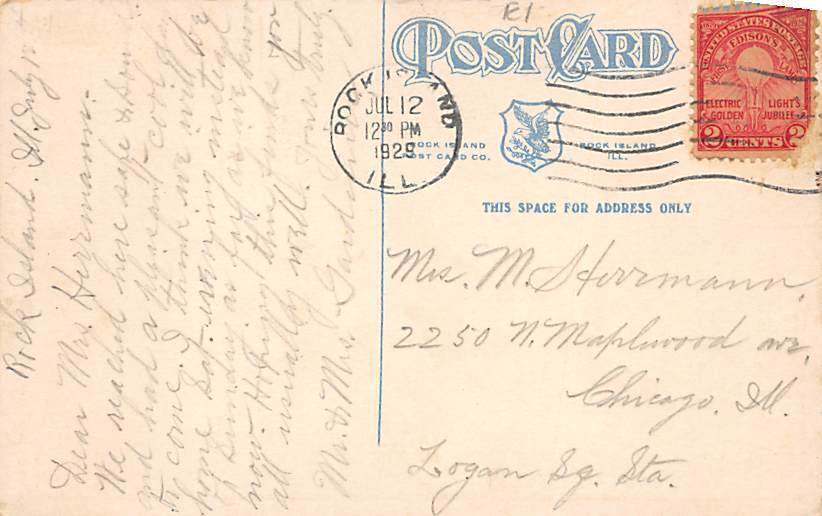 E1
POST CARD
ROCK ISLAND
JUL 12
12 30 PM
1929
ILL.
UNITED STATES POSTAGE
EDISON'S
FIRST LAMP
ELECTRIC LIGHT'S
GOLDEN JUBILEE
2 CENTS 2
ROCK ISLAND
POST CARD CO.
ROCK ISLAND
ILL.
THIS SPACE FOR ADDRESS ONLY
Mrs. M. Herrmann,
2250 N. Maplewood ave,
Chicago, Ill.
Logan Sq. Sta.
Rock Island. Ill. July 12
Dear Mrs. Herrmann:-
We reached here safe & son
and had a pleasant cool day
to come. I think we will be
home Sat. evening instead
of Sunday as far as we know
now. Hoping this finds you
all usually well. Yours truly,
Mr. & Mrs.